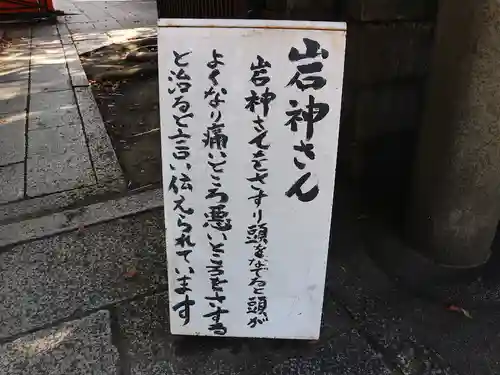 岩神さん
岩神さんをさすり頭をなでると頭が
よくなり痛いところ悪いところをさする
と治ると言い伝えられています